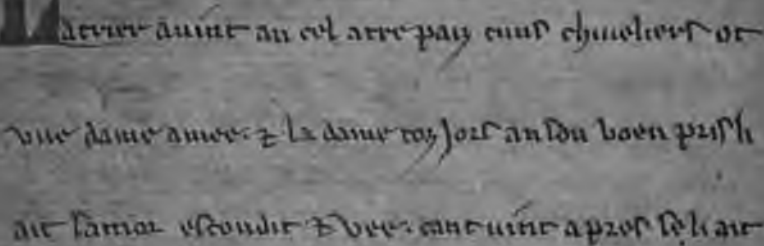 Latrier avint an cel atre païs cuns chiveliers ot
une dame amee. ⁊ la dame toz jors an son boen pris li
ait samor escondit ⁊ vee. tant vint apres se li ait